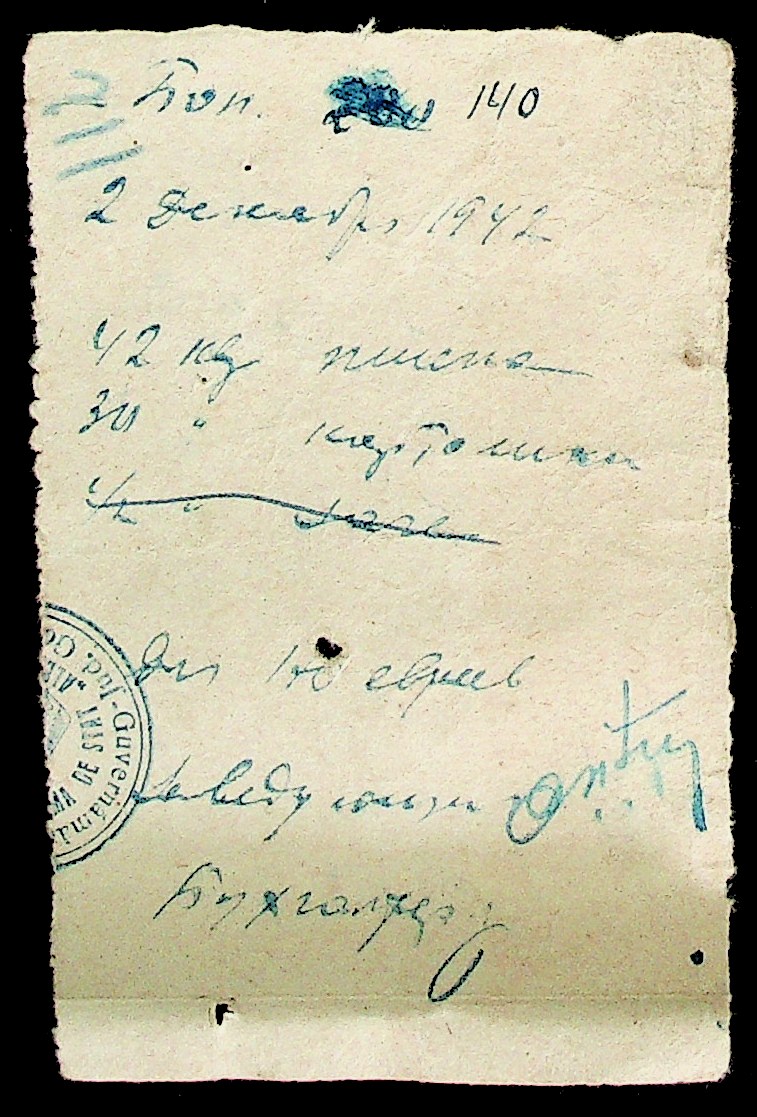 Бон. 140
2 Декабря 1942
42 кг пшена
30 " картошки
Для 140 евреев
Заведующий
Бухгалтер
Guvernămâ
Jud. Go
DE STAT